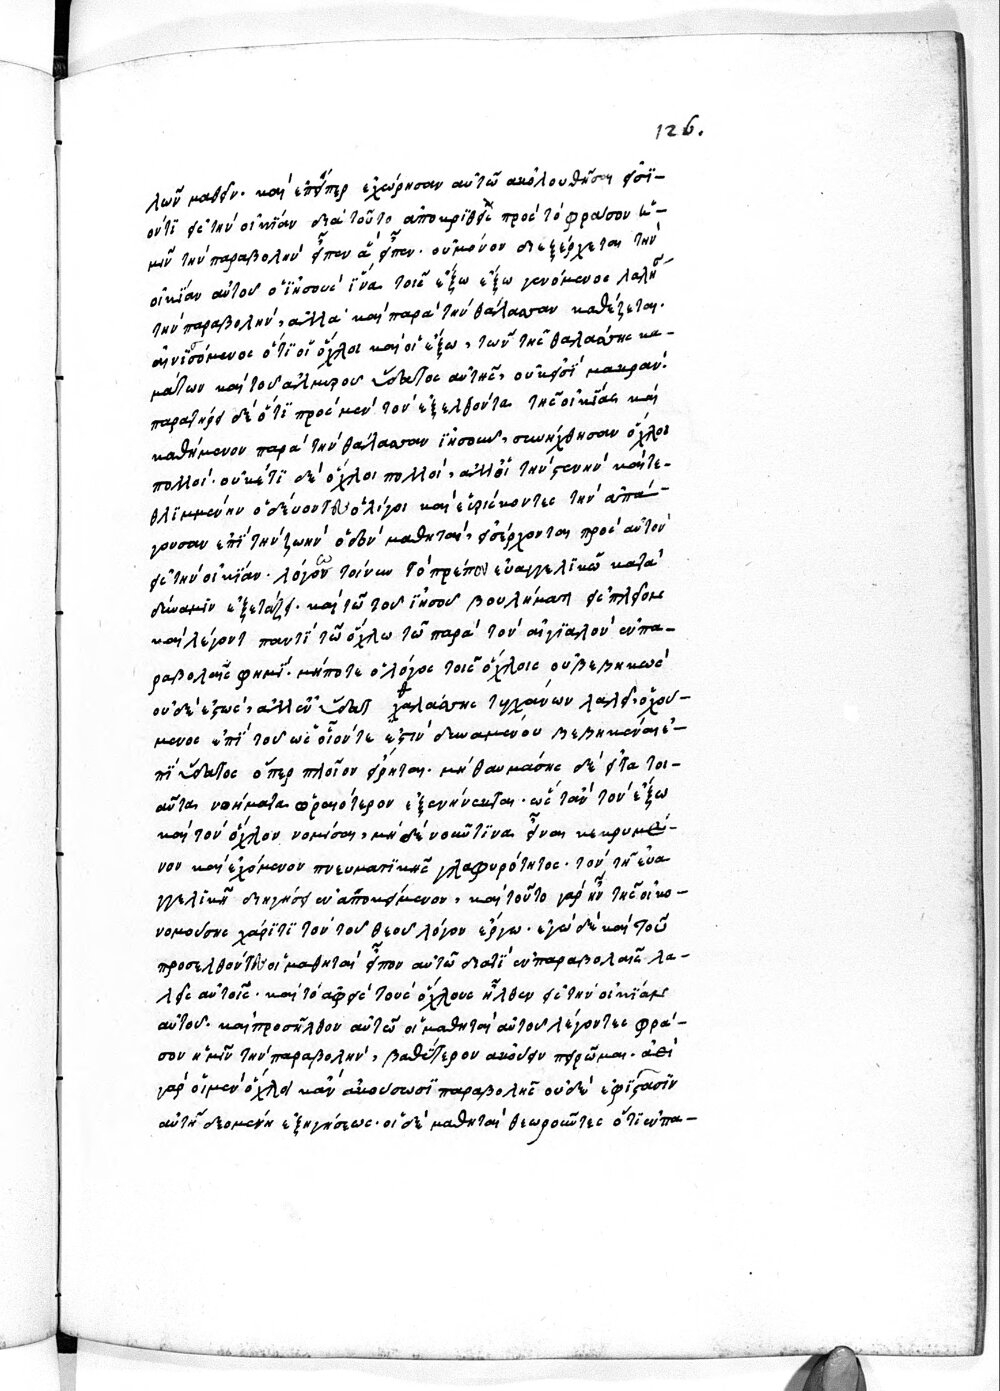 126.
λων μαθεῖν· καὶ ἐπείπερ ἐχώρησαν αὐτῶ ἀκολουθῆσαι εἰσϊ-
όντϊ εἰς τὴν οἰκίαν διὰ τοῦτο ἀποκριθεὶς πρὸς τὸ φράσον ἡ-
μῖν τὴν παραβολὴν εἶπεν ἃ εἶπεν· οὐ μόνον δὲ ἐξέρχεται τὴν
οἰκίαν αὐτοῦ ὁ ἰησοῦς ἵνα τοῖς ἔξω ἔξω γενόμενος λαλῇ
τὴν παραβολήν, ἀλλὰ καὶ παρὰ τὴν θάλασσαν καθέζεται·
αἰνισσόμενος ὅτϊ οἱ ὄχλοι καὶ οἱ ἔξω, τῶν τῆς θαλάσσης κα-
μάτων καὶ τοῦ ἁλμυροῦ ὕδατος αὐτῆς, οὐκ εἰσϊ μακράν·
παρατήρει δὲ ὅτϊ πρὸς μὲν τὸν ἐξελθόντα τῆς οἰκίας καὶ
καθήμενον παρὰ τὴν θάλασσαν ἰησοῦν, συνήχθησαν ὄχλοι
πολλοί· οὐκέτϊ δὲ ὄχλοι πολλοί, ἀλλ' οἱ τὴν στενὴν καὶ τε-
θλϊμμένην ὁδεύοντες ὀλίγοι καὶ εὑρίσκοντες τὴν ἀπά-
γουσαν ἐπὶ τὴν ζωὴν ὁδὸν μαθηταὶ, εἰσέρχονται πρὸς αὐτὸν
εἰς τὴν οἰκίαν· λόγον τοίνυν τὸ πρέπον εὐαγγελϊκῶ κατὰ
δύναμϊν ἐξετάζει· καὶ τῶ τοῦ ἰησοῦ βουλήματι
καὶ λέγοντι παντὶ τῶ ὄχλω τῶ παρὰ τὸν αἰγιαλὸν ἐν πα-
ραβολαῖς φημϊ· μήποτε ὁ λόγος τοῖς ὄχλοις οὐ βεβηκὼς
οὐδὲ ἑστὼς, ἀλλ' ἐν ὕδατι θαλάσσης τυγχάνων λαλεῖ, ὀχού-
μενος ἐπὶ τοῦ ὡς οἷόν τε ἐστὶν δυναμένου βεβηκέναι ἐ-
πὶ ὕδατος ὅπερ πλοῖον εἴρηται· μὴ θαυμάσῃς δὲ εἰ τὰ τοι-
αῦτα νοήματα ἐξενήνεκται· ὡς τὰν τὸν ἔξω
καὶ τὸν ὄχλον νομίσαι, μηδὲ νοῦν τινα εἶναι κεκρυμμέ-
νον καὶ ἐχόμενον πνευματικῆς γλαφυρότητος· τὸν τῇ εὐα
γγελϊκῇ διηγήσει ἐναποκείμενον, καὶ τοῦτο γὰρ ἦν τῆς οἰκο-
νομούσης χάριτϊ τὸν τοῦ θεοῦ λόγον ἔργω· ἐγὼ δὲ καὶ τοῦ
προσελθόντες οἱ μαθηταὶ εἶπον αὐτῶ διατί ἐν παραβολαῖς λα-
λεῖς αὐτοῖς· καὶ τὸ ἀφεὶς τοὺς ὄχλους ἦλθεν εἰς τὴν οἰκίαν
αὐτοῦ· καὶ προσῆλθον αὐτῶ οἱ μαθηταὶ αὐτοῦ λέγοντες φρά-
σον ἡμῖν τὴν παραβολὴν, βαθύτερον ἀκούειν πειρῶμαι·
γὰρ οἱ μὲν ὄχλοι κἂν ἀκούσωσϊ παραβολῆς οὐδὲ ἐφϊστᾶσϊν
αὐτῇ δεομένη ἐξηγήσεως· οἱ δὲ μαθηταὶ θεωροῦντες ὅτϊ ἐν πα-